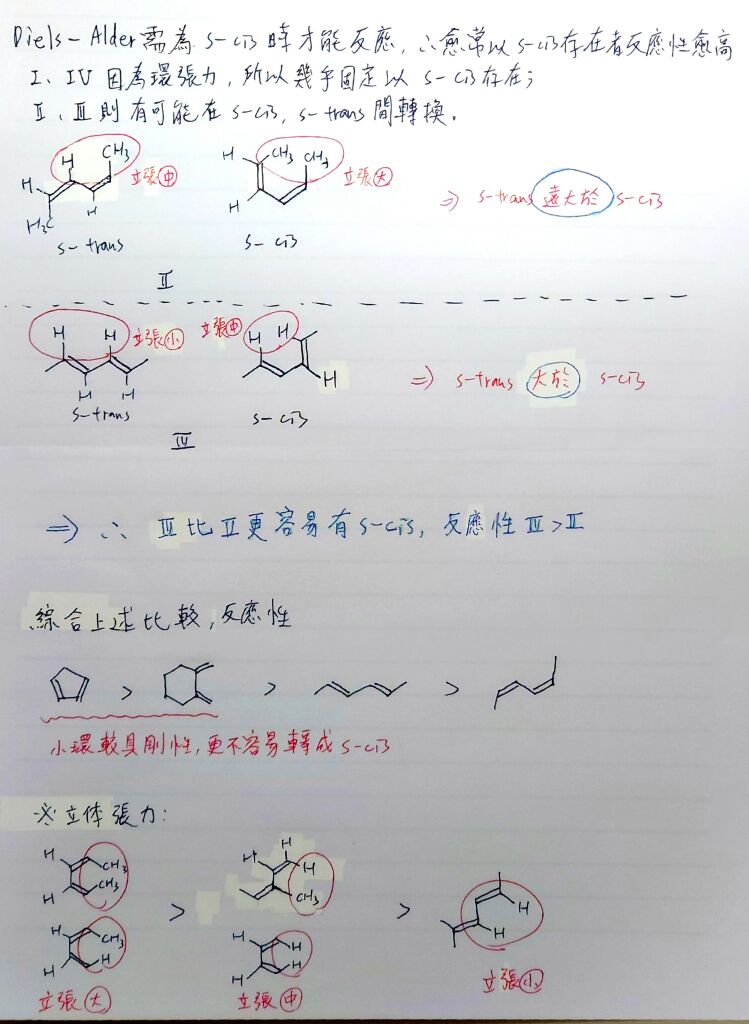 Diels-Alder需為 s-cis 時才能反應, ∴愈常以 s-cis存在者反應性愈高
I、IV 因為環張力, 所以幾乎固定以 s-cis存在;
II、III則有可能在 s-cis, s-trans 間轉換.
H H CH3 立張中
H CH3 CH3 立張大
H H3C H
H
⇒ s-trans 遠大於 s-cis
s-trans s-cis
II
H H 立張小
立張中 H H
H H
H
⇒ s-trans 大於 s-cis
s-trans s-cis
IV
⇒ ∴ III比II更容易有s-cis, 反應性 III>II
綜合上述比較, 反應性
> > >
小環較具剛性, 更不容易轉成 s-cis
※立体張力:
H CH3
H CH3
H CH3
H H
立張大
>
H H H
CH3
H H
H H
立張中
>
H
H
立張小